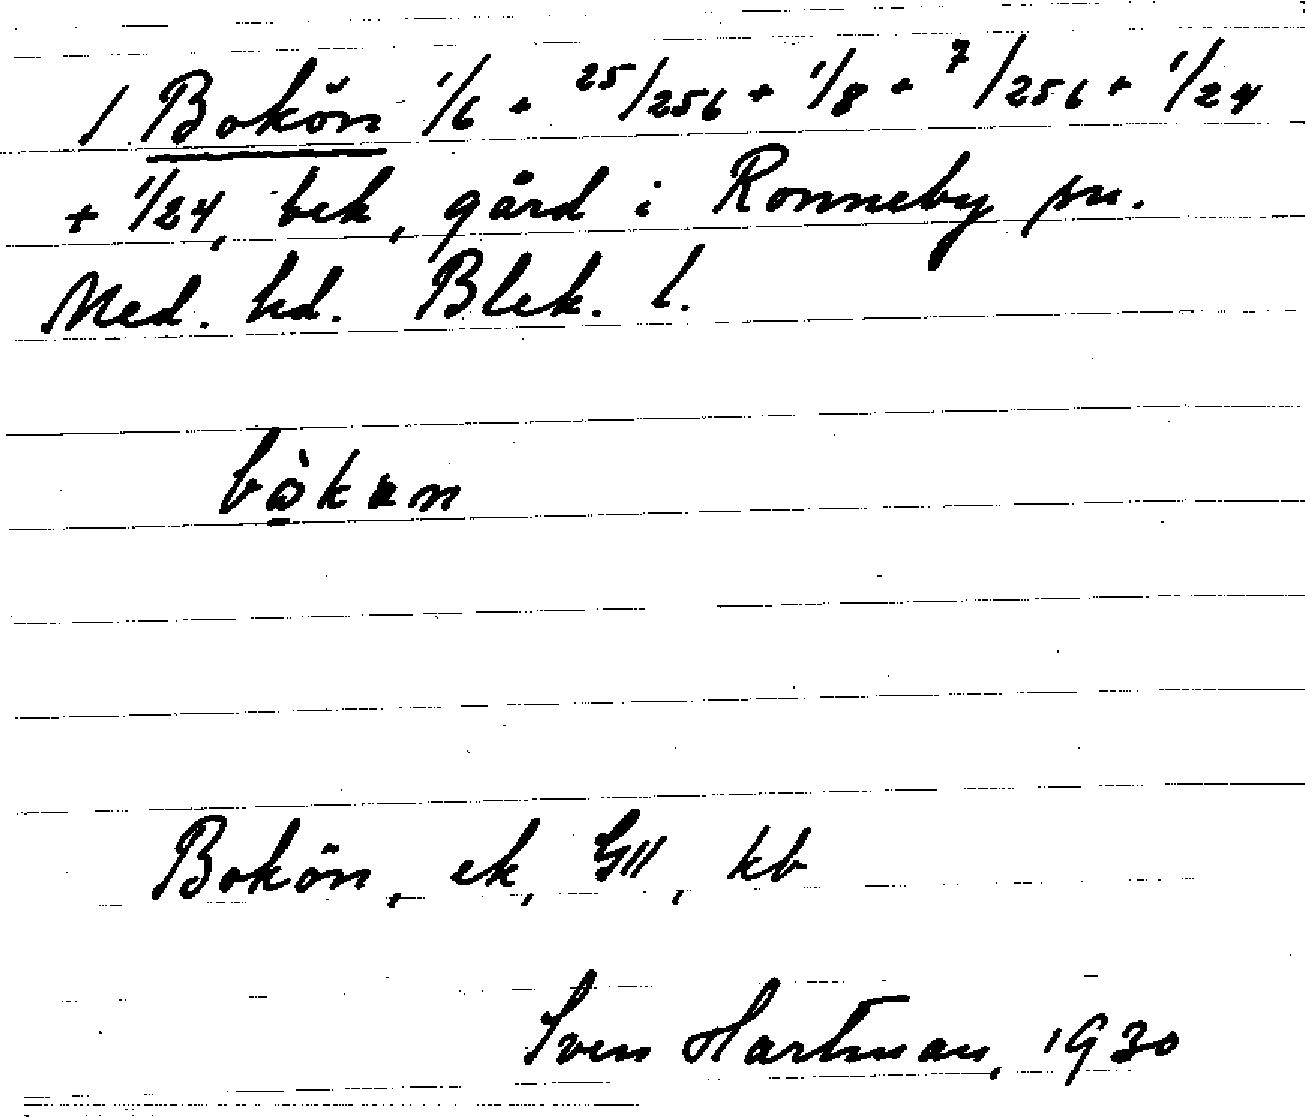 1 Bokön 1/6 + 25/256 + 1/8 + 7/256 + 1/24
+ 1/24, bek, gård i Ronneby sn.
Med. hd. Blek. l.
Bokön, ek, GII, kb
Sven Hartman, 1930